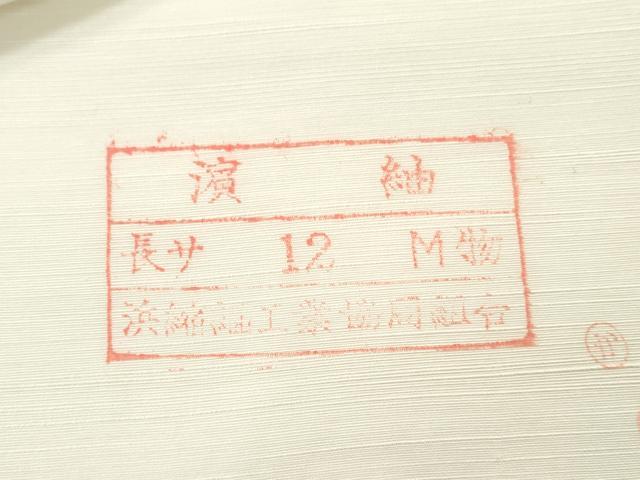 濱紬
長サ 12 M物
浜縮緬工業協同組合